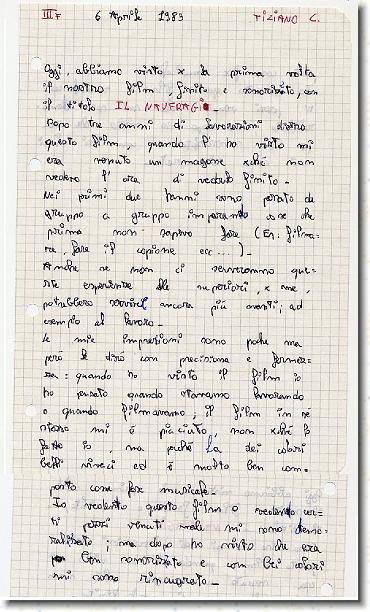 III F 6 Aprile 1983 TIZIANO C.
Oggi, abbiamo visto x la prima volta
il nostro film, finito e sonorizzato, con
il titolo IL NAUFRAGIO_
Dopo tre anni di lavorazioni dietro
questo film quando l'ho visto mi
era venuto un magone xché non
vedevo l'ora di vederlo finito_
Nei primi due hanni sono passato da
gruppo a gruppo imparando cose che
prima non sapevo fare (Es: filma=
re, fare il copione ecc....)_
Anche se non ci serviranno que=
ste esperienze alle superiori, x me,
potrebbero servirci ancora più avanti; ad
esempio al lavoro_
Le mie impressioni sono poche ma
però le dirò con precisione e fermez=
za: quando ho visto il film io
ho pensato quando stavamo lavorando
o quando filmavamo; il film in se
stesso mi è piaciuto, non xché l'ò
fatto io, ma perché ha dei colori
belli vivaci ed è molto ben com=
posto come fase musicale_
Io vedendo questo film o vedendo cer=
ti pezzi venuti male mi sono demo=
ralizzato; ma dopo ho visto che era
ben sonorizzato e con bei colori
mi sono rincuorato_